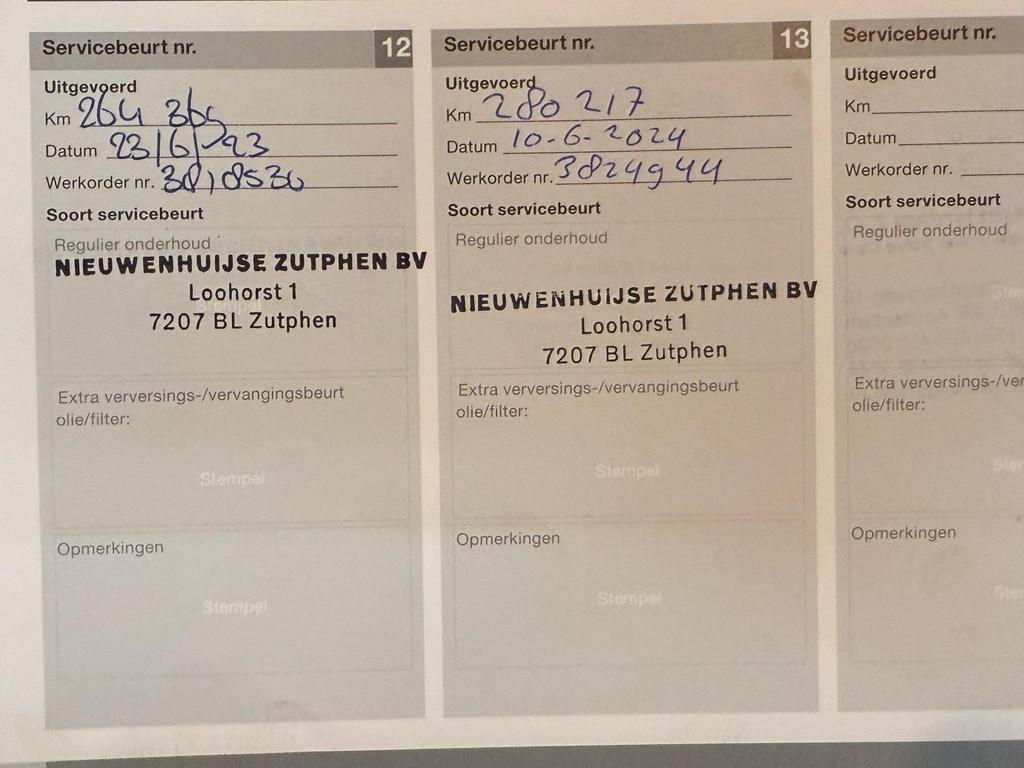 Servicebeurt nr. 12
Uitgevoerd
Km 264 369
Datum 23/6/23
Werkorder nr. 3818536
Soort servicebeurt
Regulier onderhoud
NIEUWENHUIJSE ZUTPHEN BV
Loohorst 1
7207 BL Zutphen
Extra verversings-/vervangingsbeurt
olie/filter:
Stempel
Opmerkingen
Stempel
Servicebeurt nr. 13
Uitgevoerd
Km 280 217
Datum 10-6-2024
Werkorder nr. 3824944
Soort servicebeurt
Regulier onderhoud
NIEUWENHUIJSE ZUTPHEN BV
Loohorst 1
7207 BL Zutphen
Extra verversings-/vervangingsbeurt
olie/filter:
Stempel
Opmerkingen
Stempel
Servicebeurt nr.
Uitgevoerd
Km
Datum
Werkorder nr.
Soort servicebeurt
Regulier onderhoud
Ster
Extra verversings-/ver
olie/filter:
Ster
Opmerkingen
Ster